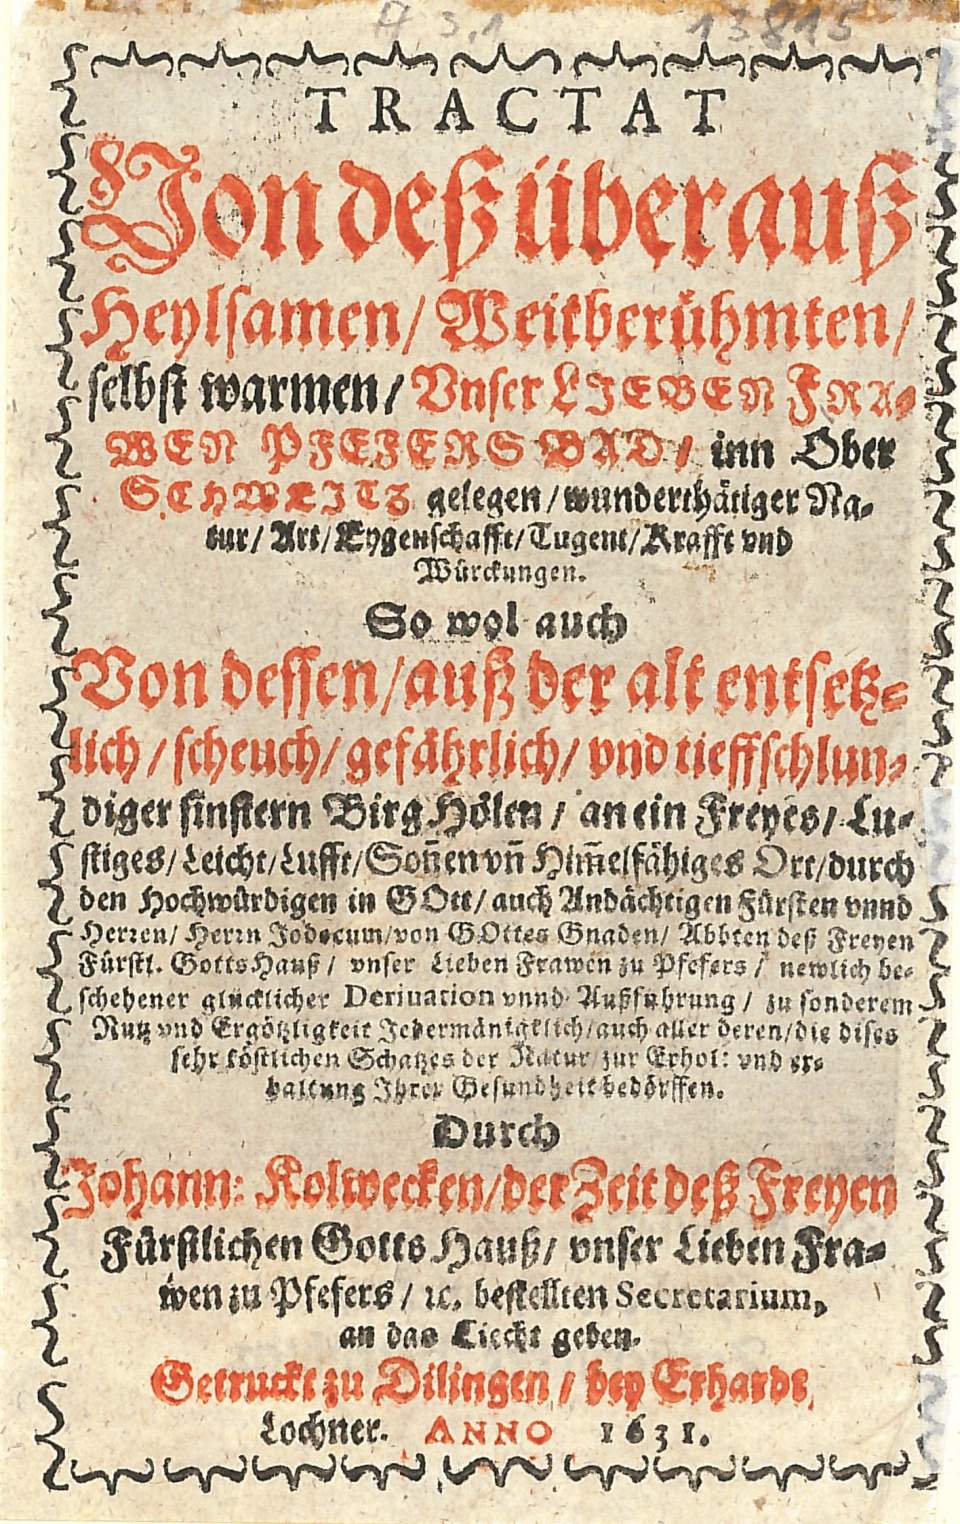 A 3,1 13815
TRACTAT
Von deß überauß
Heylsamen/ Weitberühmten/
selbst warmen/ Vnser LIEBEN FRA-
WEN PFEFERS BAD/ inn Ober
SCHWEITZ gelegen/ wunderthätiger Na-
tur/ Art/ Eygenschafft/ Tugent/ Krafft vnd
Würckungen.
So wol auch
Von dessen/ auß der alt entsetz-
lich/ scheuch/ gefährlich/ vnd tieffschlun-
diger finstern Birg Hölen/ an ein Freyes/ Lu-
stiges/ Leicht/ Lufft/ Soñen vñ Him̃elfähiges Ort/ durch
den Hochwürdigen in GOtt/ auch Andächtigen Fürsten vnnd
Herren/ Herrn Jodocum/ von GOttes Gnaden/ Abbten deß Freyen
Fürstl. Gotts Hauß/ vnser Lieben Frawen zu Pfefers/ newlich be-
schehener glücklicher Deriuation vnnd Außführung/ zu sonderem
Nutz vnd Ergötzligkeit Jedermänigklich/ auch aller deren/ die dises
sehr köstlichen Schatzes der Natur/ zur Erhol: vnd er-
haltung Ihrer Gesundheit bedörffen.
Durch
Johann: Kolwecken/ der Zeit deß Freyen
Fürstlichen Gotts Hauß/ vnser Lieben Fra-
wen zu Pfefers/ ꝛc. bestellten Secretarium,
an das Liecht geben.
Getruckt zu Dilingen/ bey Erhardt
Lochner. ANNO 1631.